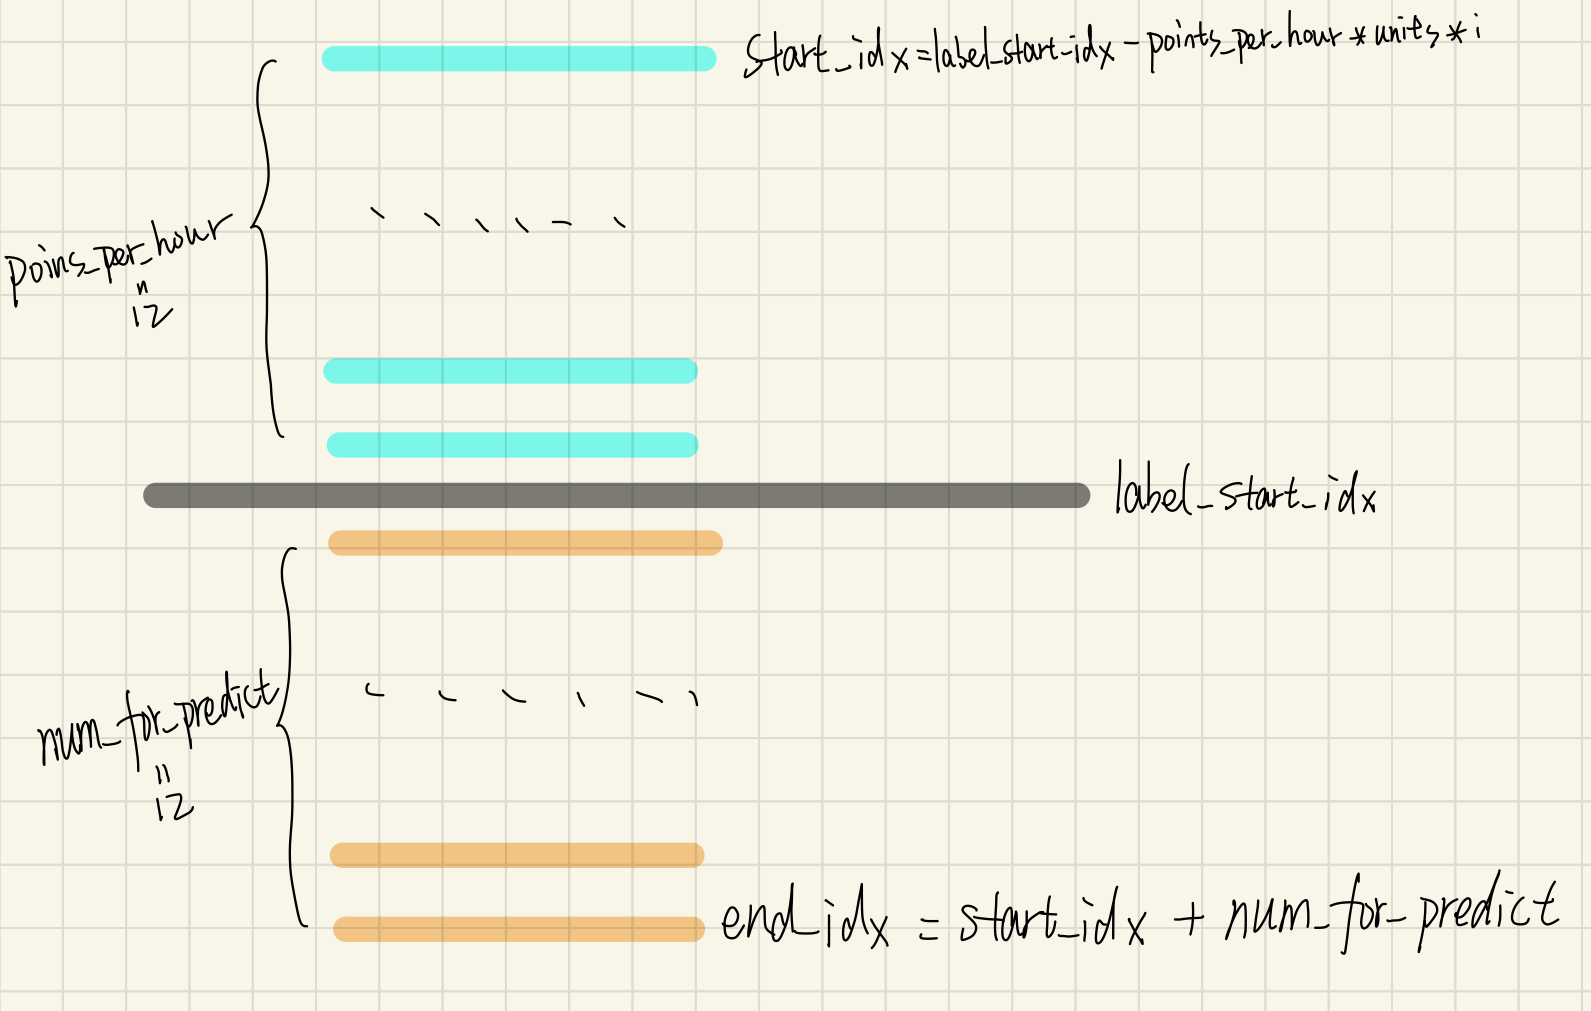 start_idx=label_start_idx - points_per_hour * units * i
poins_per_hour
=
12
label_start_idx
num_for_predict
=
12
end_idx = start_idx + num_for_predict